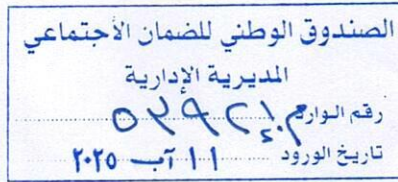 الصندوق الوطني للضمان الأجتماعي
المديرية الإدارية
رقم الوارد
تاريخ الورود ١١ آب ٢٠٢٥